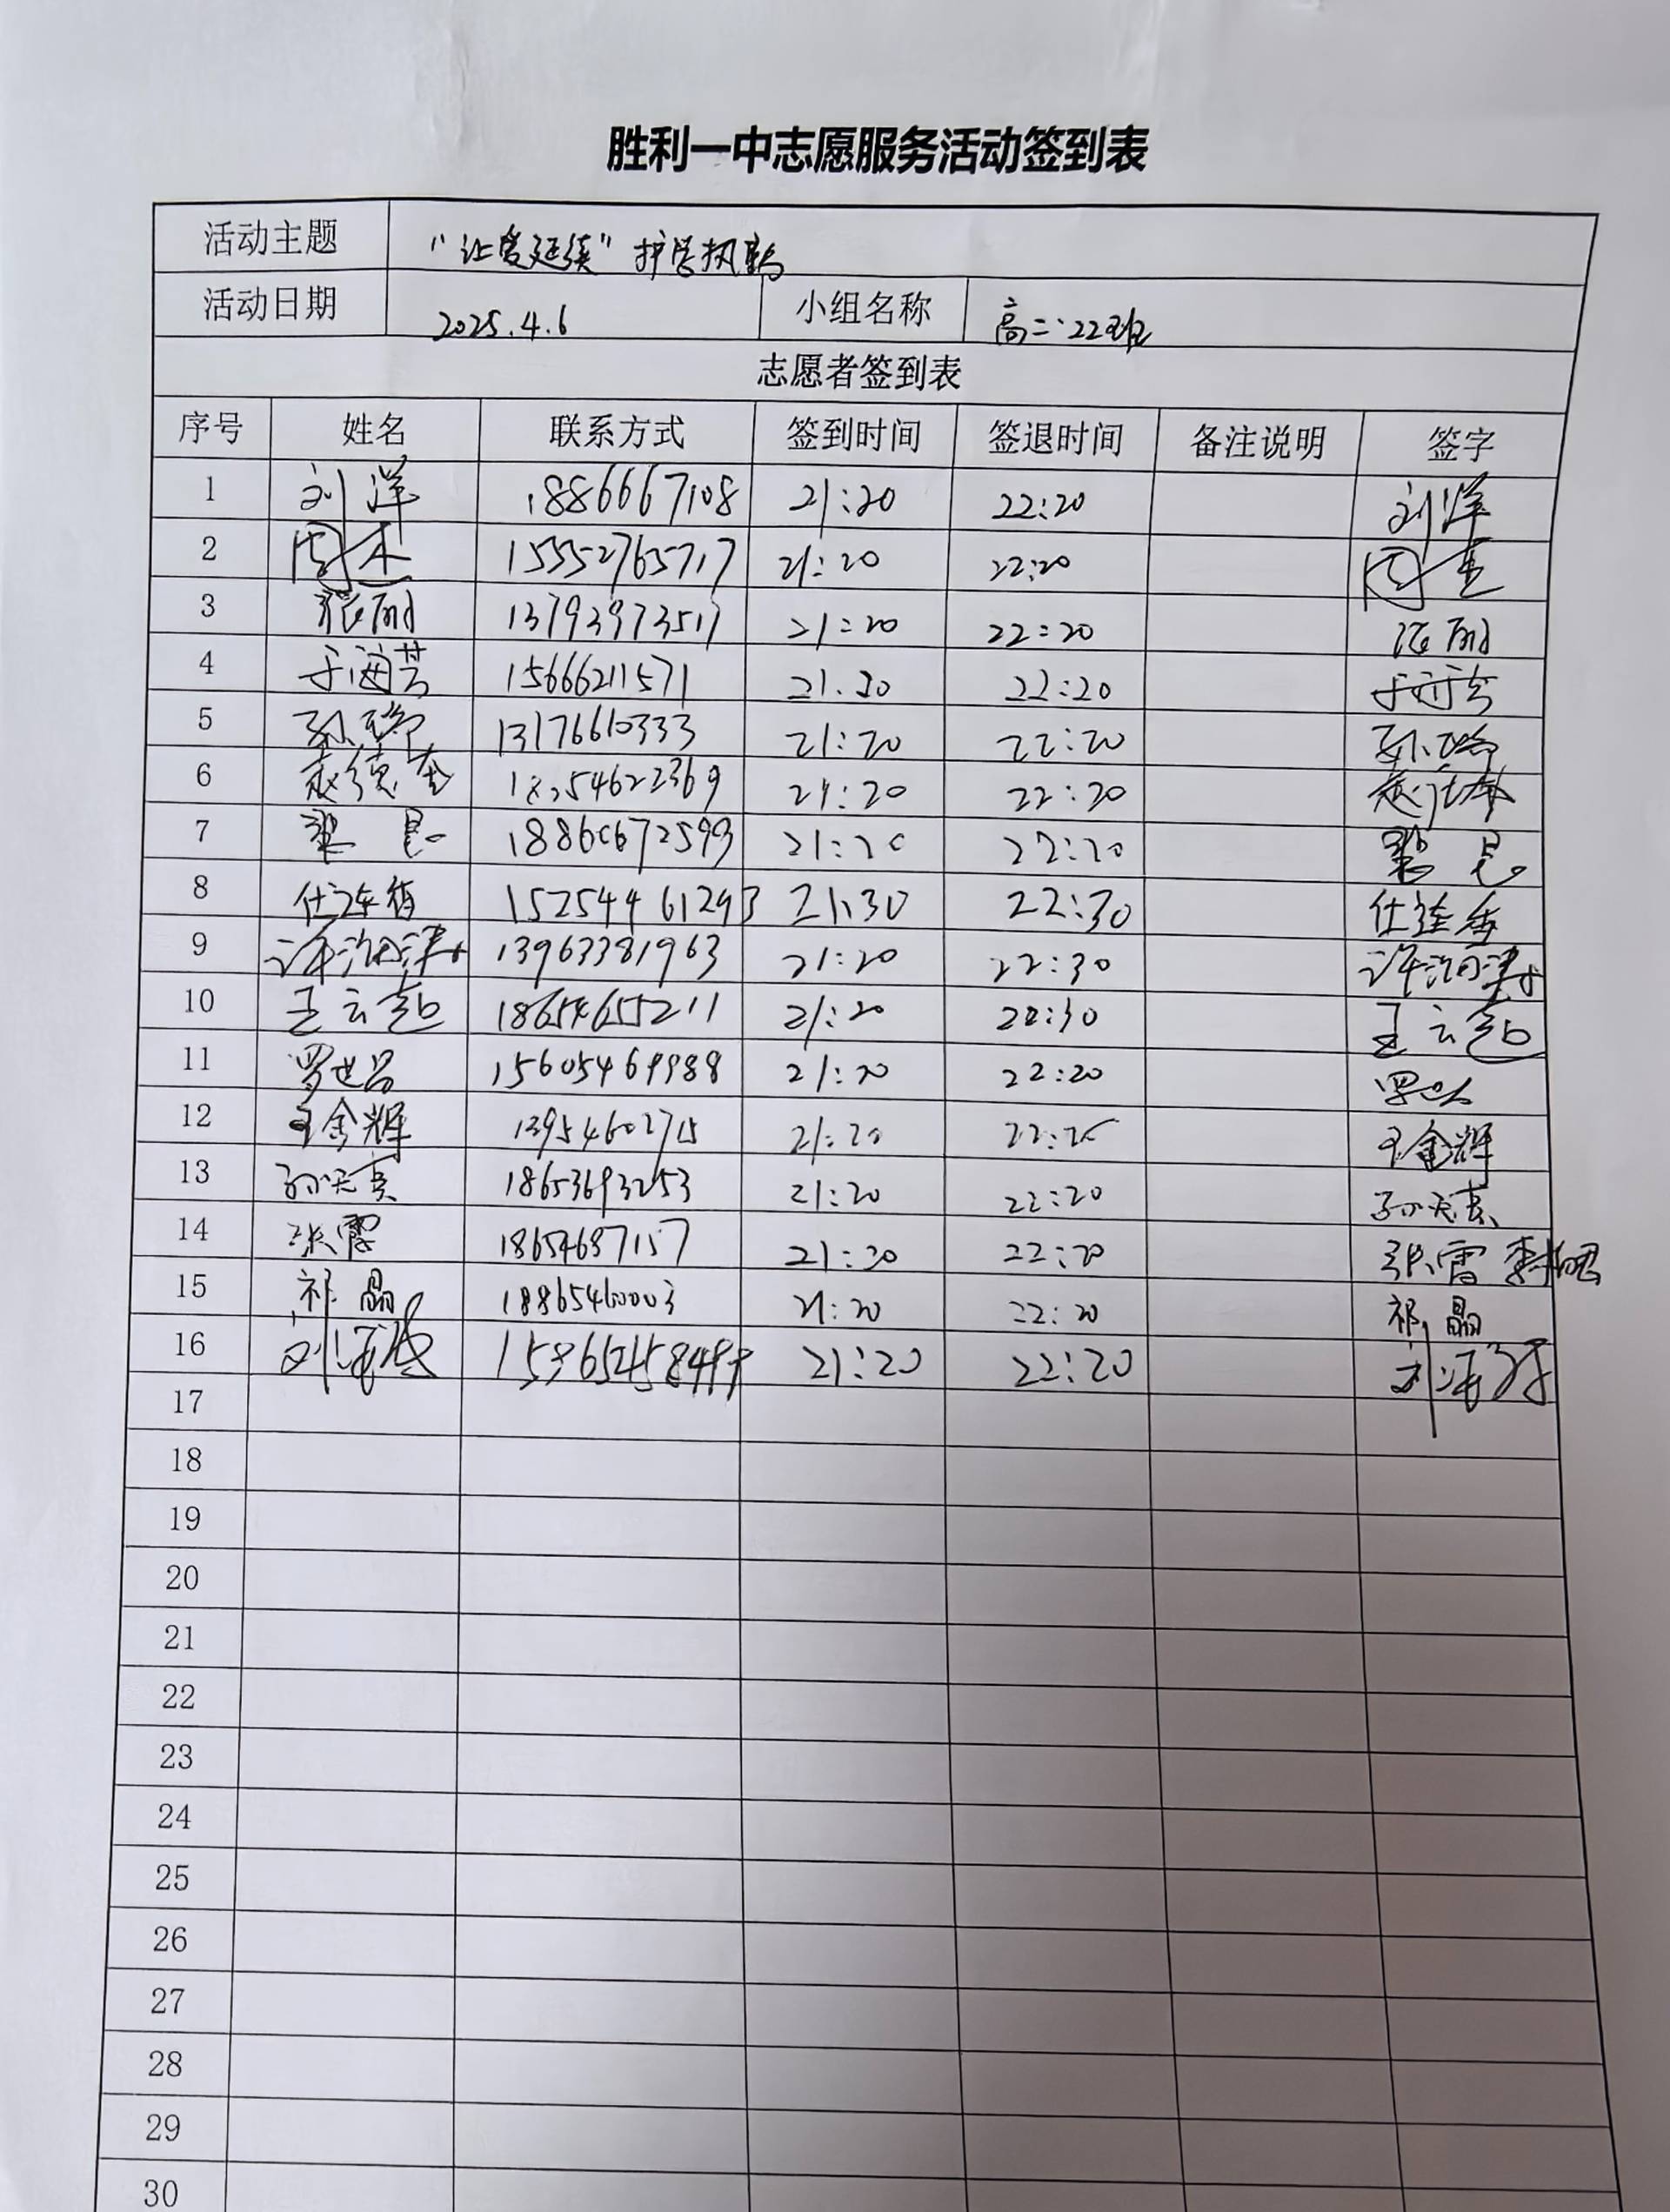 胜利一中志愿服务活动签到表
活动主题 “让爱延续”护学执勤
活动日期 2025.4.6 小组名称 高二.22班
志愿者签到表
序号 姓名 联系方式 签到时间 签退时间 备注说明 签字
1 刘洋 18866667108 21:20 22:20 刘洋
2 周杰 15552765717 21:20 22:20 周杰
3 张丽 13793973517 21:20 22:20 张丽
4 于海芳 15666211571 21:20 22:20 于海芳
5 孙 13176610333 21:20 22:20 孙
6 赵德 18254622369 21:20 22:20 赵德
7 18860672593 21:20 22:20
8 仕连香 15254461293 21:30 22:30 仕连香
9 许海 13963381963 21:20 22:30 许海
10 王云起 18654655211 21:20 22:30 王云起
11 罗世 15605469988 21:20 22:20 罗世
12 王金辉 13954602715 21:20 22:20 王金辉
13 孙天 18653693253 21:20 22:20 孙天
14 张雷 18654687157 21:20 22:20 张雷
15 祁晶 18865460003 21:20 22:20 祁晶
16 刘海 21:20 22:20 刘海
17
18
19
20
21
22
23
24
25
26
27
28
29
30